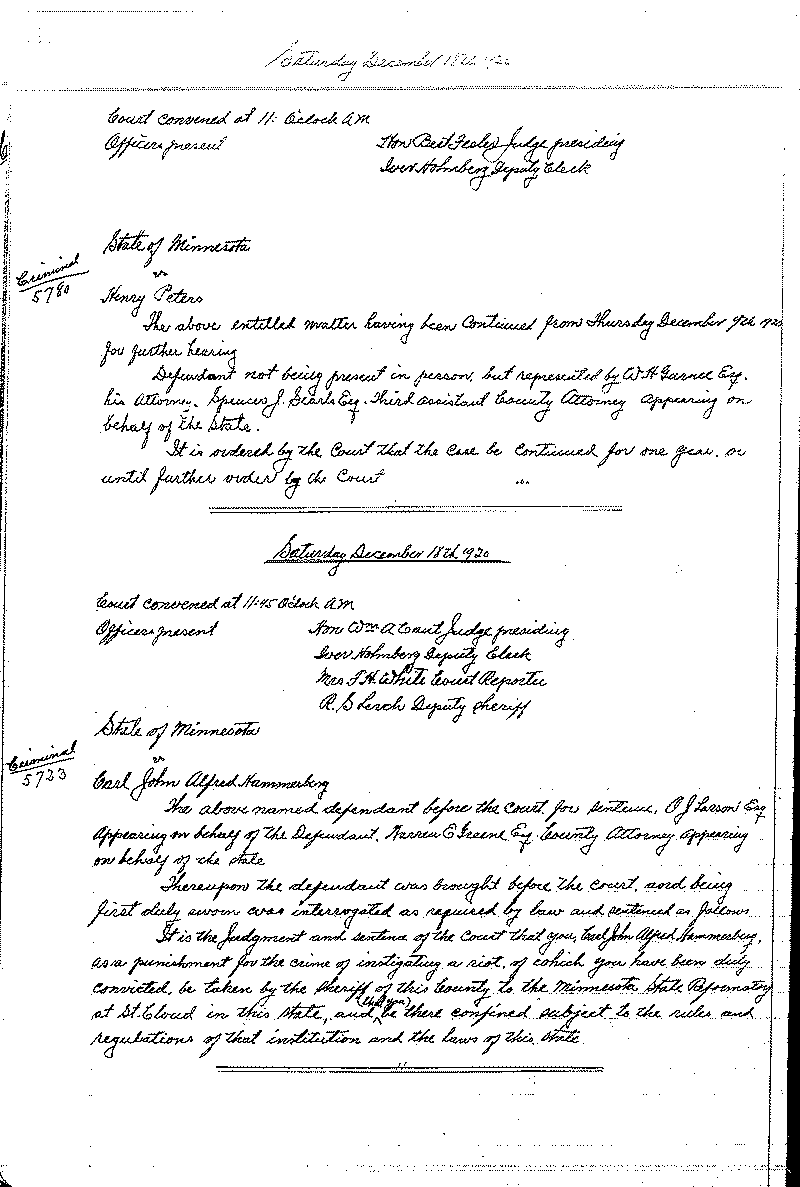 Saturday December 18th 1920
Court convened at 11: O'clock A M
Officers present
Hon Bert Fesler Judge presiding
Iver Holmberg Deputy Clerk
State of Minnesota
Criminal
5780
vs
Henry Peters
The above entitled matter having been Continued from Thursday December 9th 1920
for further hearing
Defendant not being present in person, but represented by W. H. Gurnee Esq.
his Attorney. Spencer J. Searls Esq. Third assistant County Attorney appearing on
behalf of the State.
It is ordered by the Court that the case be continued for one year, or
until further order by the Court
Saturday December 18th 1920
Court convened at 11:45 O'clock A M
Officers present
Hon Wm A Cant Judge presiding
Iver Holmberg Deputy Clerk
Mrs F. H. White Court Reporter
R. G Lerch Deputy Sheriff
State of Minnesota
Criminal
5723
vs
Carl John Alfred Hammerberg
The above named defendant before the Court for sentence, O J Larson Esq
appearing on behalf of the Defendant, Warren E Greene Esq. County Attorney appearing
on behalf of the State
Thereupon the defendant was brought before the court, and being
first duly sworn was interrogated as required by law and sentenced as follows
It is the Judgment and sentence of the Court that you, Carl John Alfred Hammerberg,
as a punishment for the crime of instigating a riot, of which you have been duly
convicted, be taken by the Sheriff of this County to the Minnesota State Reformatory
at St. Cloud in this State, and (that you) be there confined subject to the rules and
regulations of that institution and the laws of this State